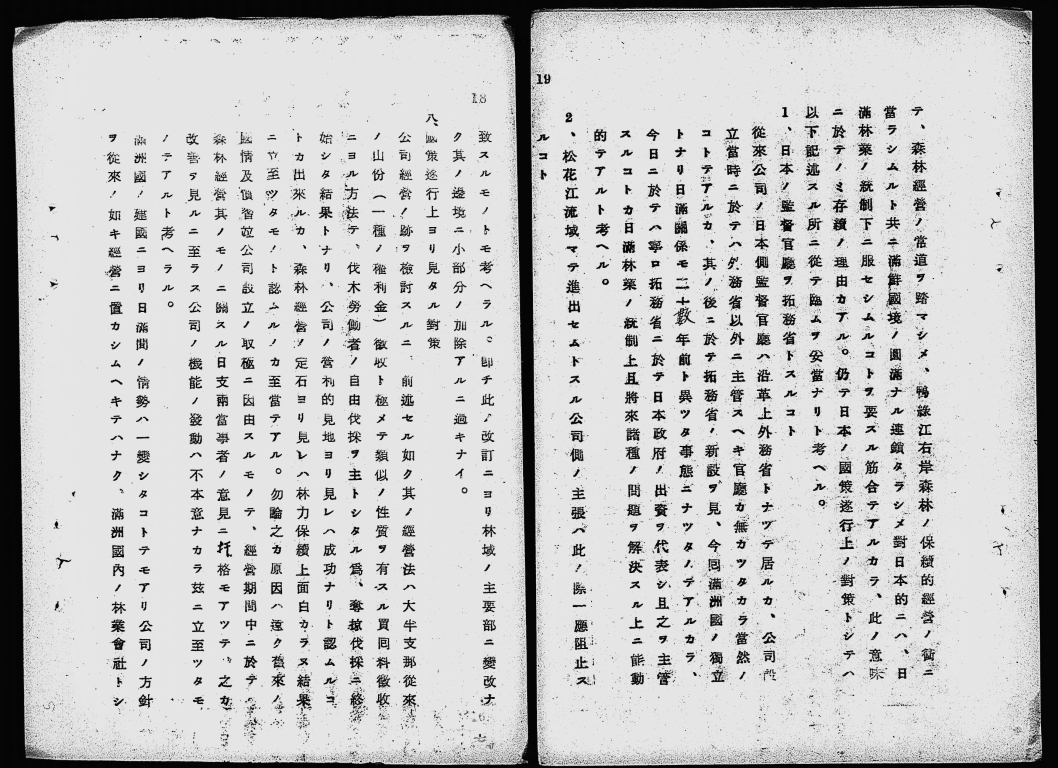 18
致スルモノトモ考ヘラル。卽チ此ノ改訂ニヨリ林域ノ主要部ニ變改ナ
ク其ノ邊境ニ小部分ノ加除アルニ過キナイ。
八、國策遂行上ヨリ見タル對策
公司經營ノ跡ヲ檢討スルニ、前述セル如ク其ノ經營法ハ大半支那從來
ノ山份(一種ノ權利金)徵收ト極メテ類似ノ性質ヲ有スル買回料徵收
ニヨル方法テ、伐木勞働者ノ自由伐採ヲ主トシタル爲、奪掠伐採ニ終
始シタ結果トナリ、公司ノ營利的見地ヨリ見レハ成功ナリト認ムルコ
トカ出來ルカ、森林經營ノ定石ヨリ見レハ林力保續上面白カラヌ結果
ニ立至ツタモノト認ムルノカ至當テアル。勿論之カ原因ハ遠ク舊來ノ
國情及慣習竝公司設立ノ取極ニ因由スルモノテ、經營期間中ニ於テハ
森林經營其ノモノニ關スル日支兩當事者ノ意見ニ扞格モアツテ、之カ
改善ヲ見ルニ至ラス公司ノ機能ノ發動ハ不本意ナカラ茲ニ立至ツタモ
ノテアルト考ヘラル。
滿洲國ノ建國ニヨリ日滿間ノ情勢ハ一變シタコトテモアリ公司ノ方針
ヲ從來ノ如キ經營ニ置カシムヘキテハナク、滿洲國內ノ林業會社トシ
19
テ、森林經營ノ常道ヲ踏マシメ、鴨綠江右岸森林ノ保續的經營ノ衝ニ
當ラシムルト共ニ滿鮮國境ノ圓滿ナル連鎖タラシメ對日本的ニハ、日
滿林業ノ統制下ニ服セシムルコトヲ要スル筋合テアルカラ、此ノ意味
ニ於テノミ存續ノ理由カアル。仍テ日本ノ國策遂行上ノ對策トシテハ
以下記述スル所ニ從テ臨ムヲ妥當ナリト考ヘル。
1、日本ノ監督官廳ヲ拓務省トスルコト
從來公司ノ日本側監督官廳ハ沿革上外務省トナツテ居ルカ、公司設
立當時ニ於テハ外務省以外ニ主管スヘキ官廳カ無カツタカラ當然ノ
コトテアルカ、其ノ後ニ於テ拓務省ノ新設ヲ見、今回滿洲國ノ獨立
トナリ日滿關係モ二十數年前ト異ツタ事態ニナツタノテアルカラ、
今日ニ於テハ寧ロ拓務省ニ於テ日本政府ノ出資ヲ代表シ且之ヲ主管
スルコトカ日滿林業ノ統制上且將來諸種ノ問題ヲ解決スル上ニ能動
的テアルト考ヘル。
2、松花江流域マテ進出セムトスル公司側ノ主張ハ此ノ際一應阻止ス
ルコト